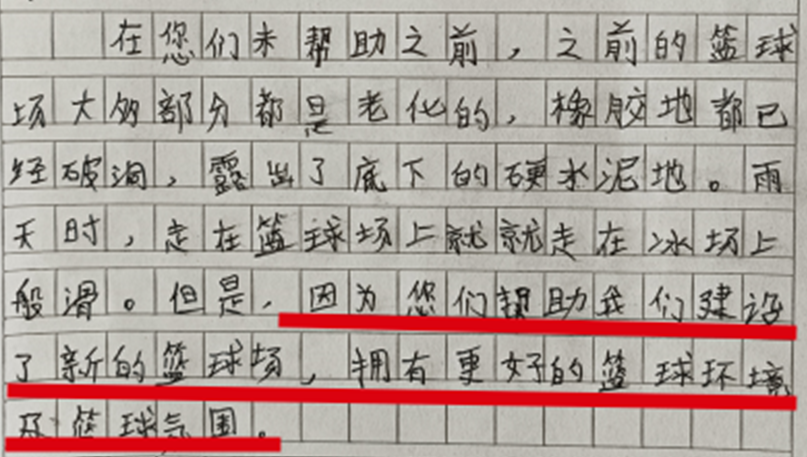 在您们未帮助之前，之前的篮球
场大多部分都是老化的，橡胶地都已
经破洞，露出了底下的硬水泥地。雨
天时，走在篮球场上就就走在冰场上
般滑。但是，因为您们帮助我们建设
了新的篮球场，拥有更好的篮球环境
及篮球气围。